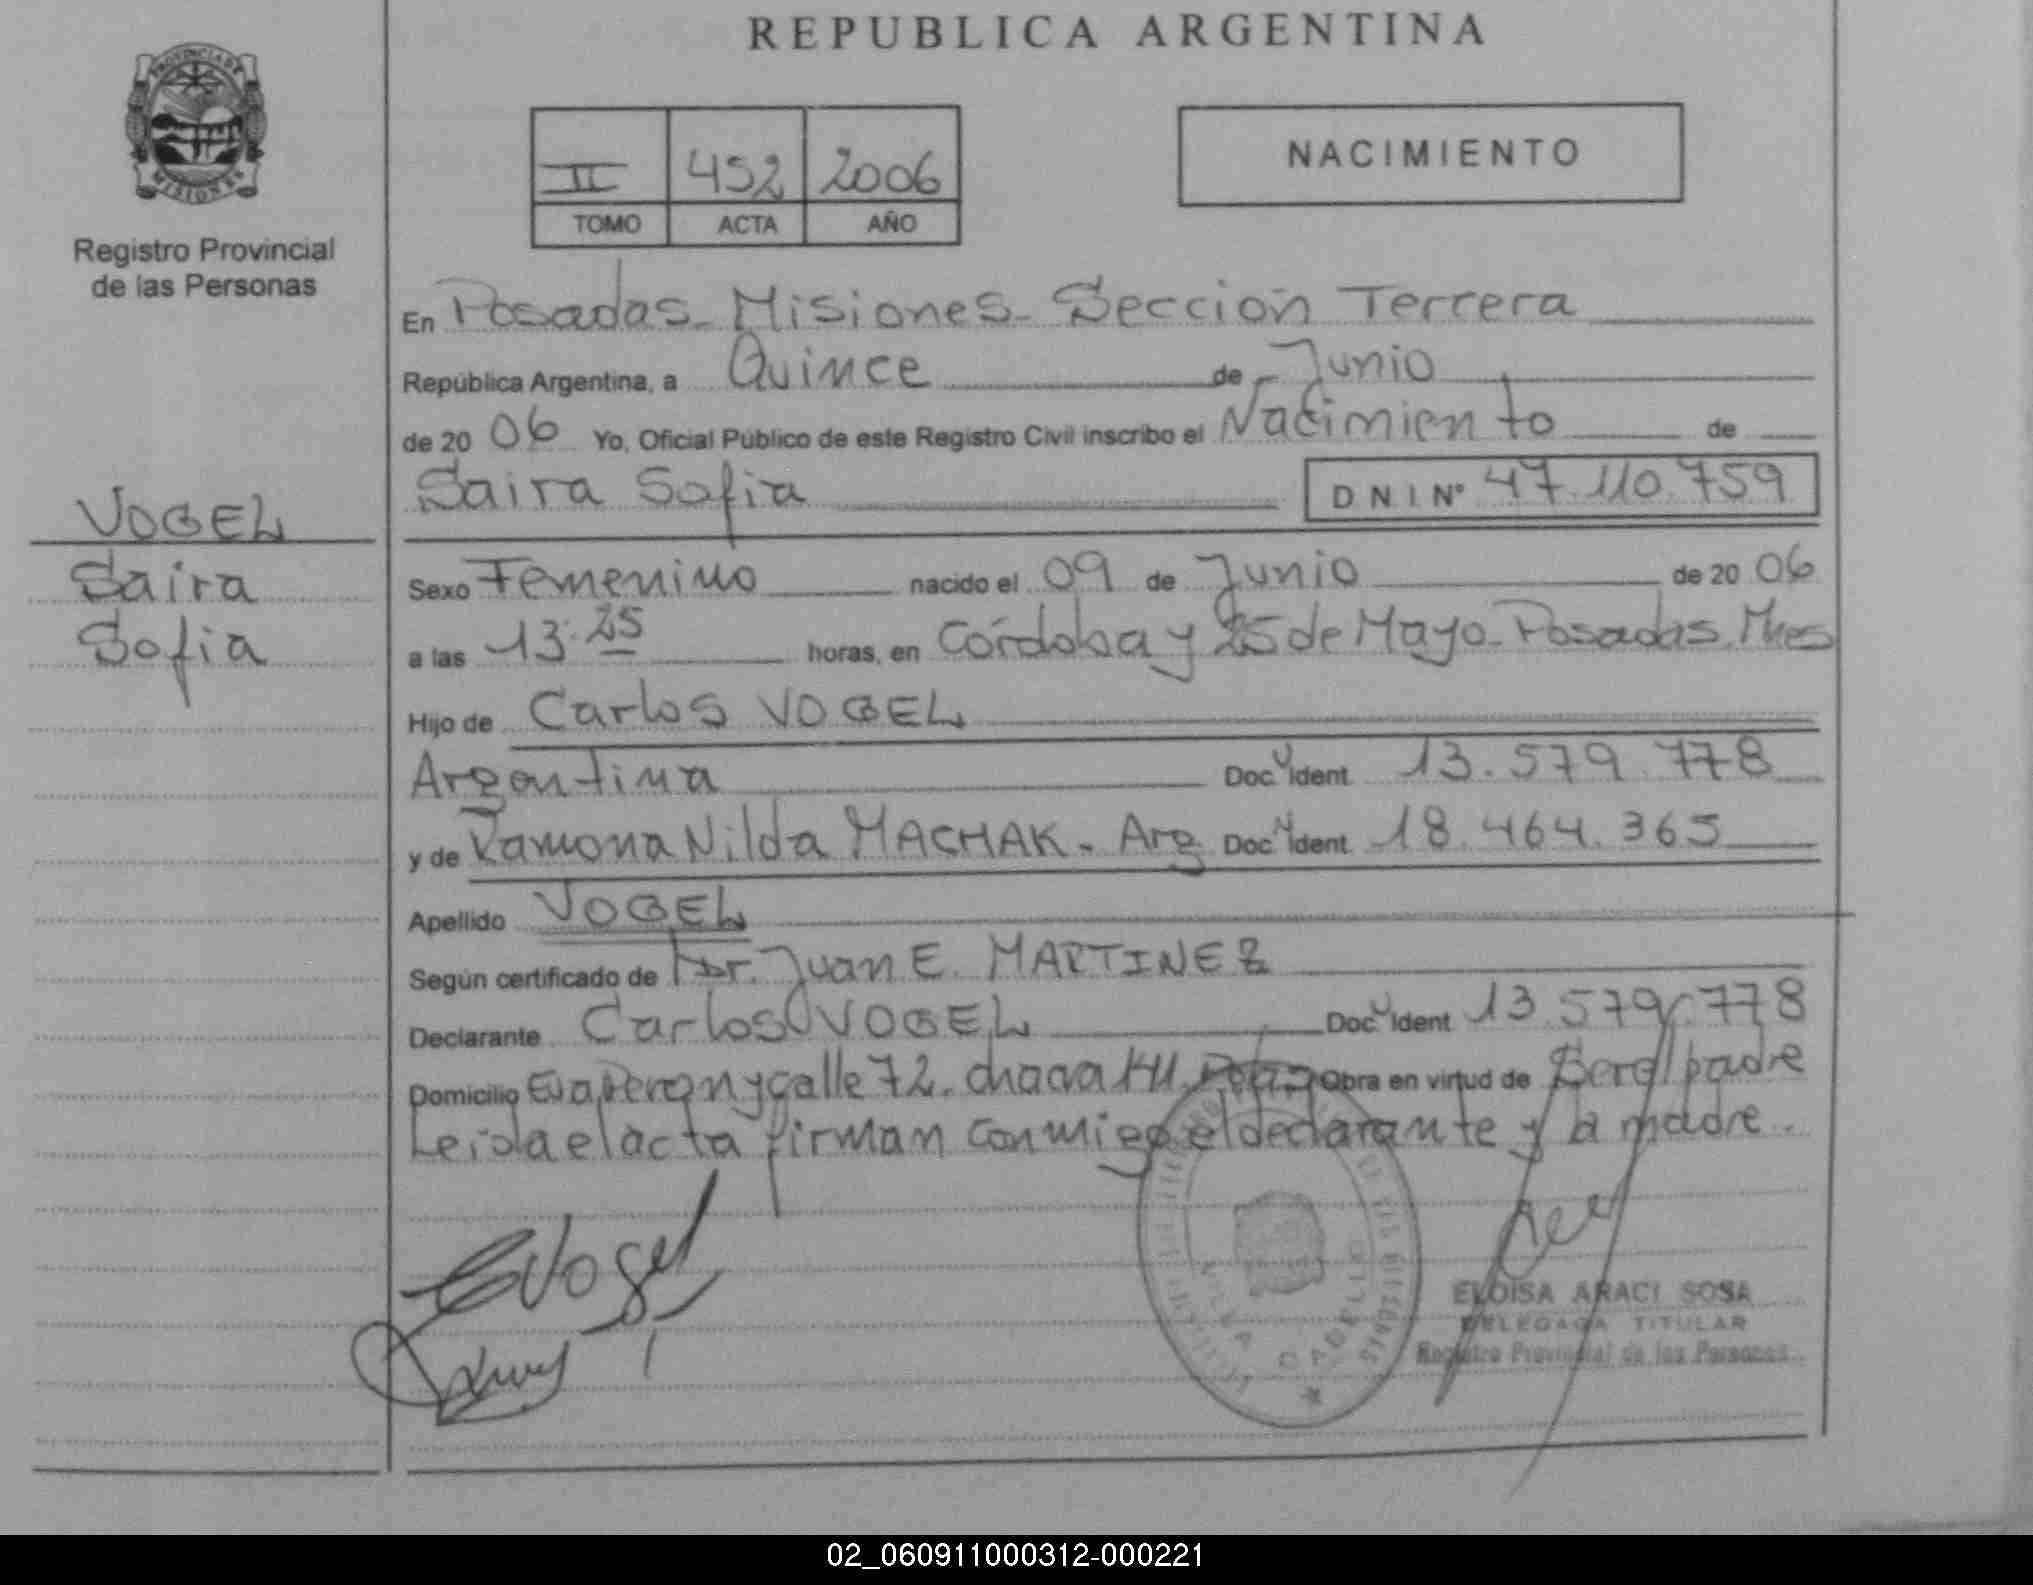 REPUBLICA ARGENTINA
PROVINCIA DE
MISIONES
Registro Provincial
de las Personas
II 452 2006
TOMO ACTA AÑO
NACIMIENTO
En Posadas - Misiones - Sección Tercera
República Argentina, a Quince de Junio
de 20 06 Yo, Oficial Público de este Registro Civil inscribo el Nacimiento de
Saira Sofia D N I Nº 47.110.759
VOGEL
Saira
Sofia
Sexo Femenino nacido el 09 de Junio de 20 06
a las 13:25 horas, en Córdoba y 25 de Mayo - Posadas. Mnes
Hijo de Carlos VOGEL
Argentina Doc. Ident 13.579.778
y de Ramona Nilda MACHAK - Arg Doc. Ident 18.464.365
Apellido VOGEL
Según certificado de Dr. Juan E. MARTINEZ
Declarante Carlos VOGEL Doc. Ident 13.579.778
Domicilio Eva Peron y calle 72. chacra Obra en virtud de Ser el padre
Leida el acta firman conmigo el declarante y la madre.
CVogel
ELOISA ARACI SOSA
DELEGADA TITULAR
Registro Provincial de las Personas
02_060911000312-000221